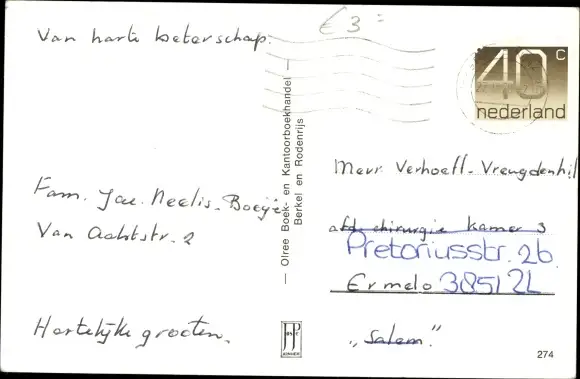 € 3 =
Van harte beterschap.
40 c
nederland
Mevr Verhoeff-Vreugdenhil
Fam. Jac. Neelis-Boeije
Van Achtstr. 2
afd chirurgie kamer 3
Pretoriusstr. 26
Ermelo 3851 ZL
Hartelijke groeten.
„Salem."
— Olree Boek- en Kantoorboekhandel —
Berkel en Rodenrijs
274